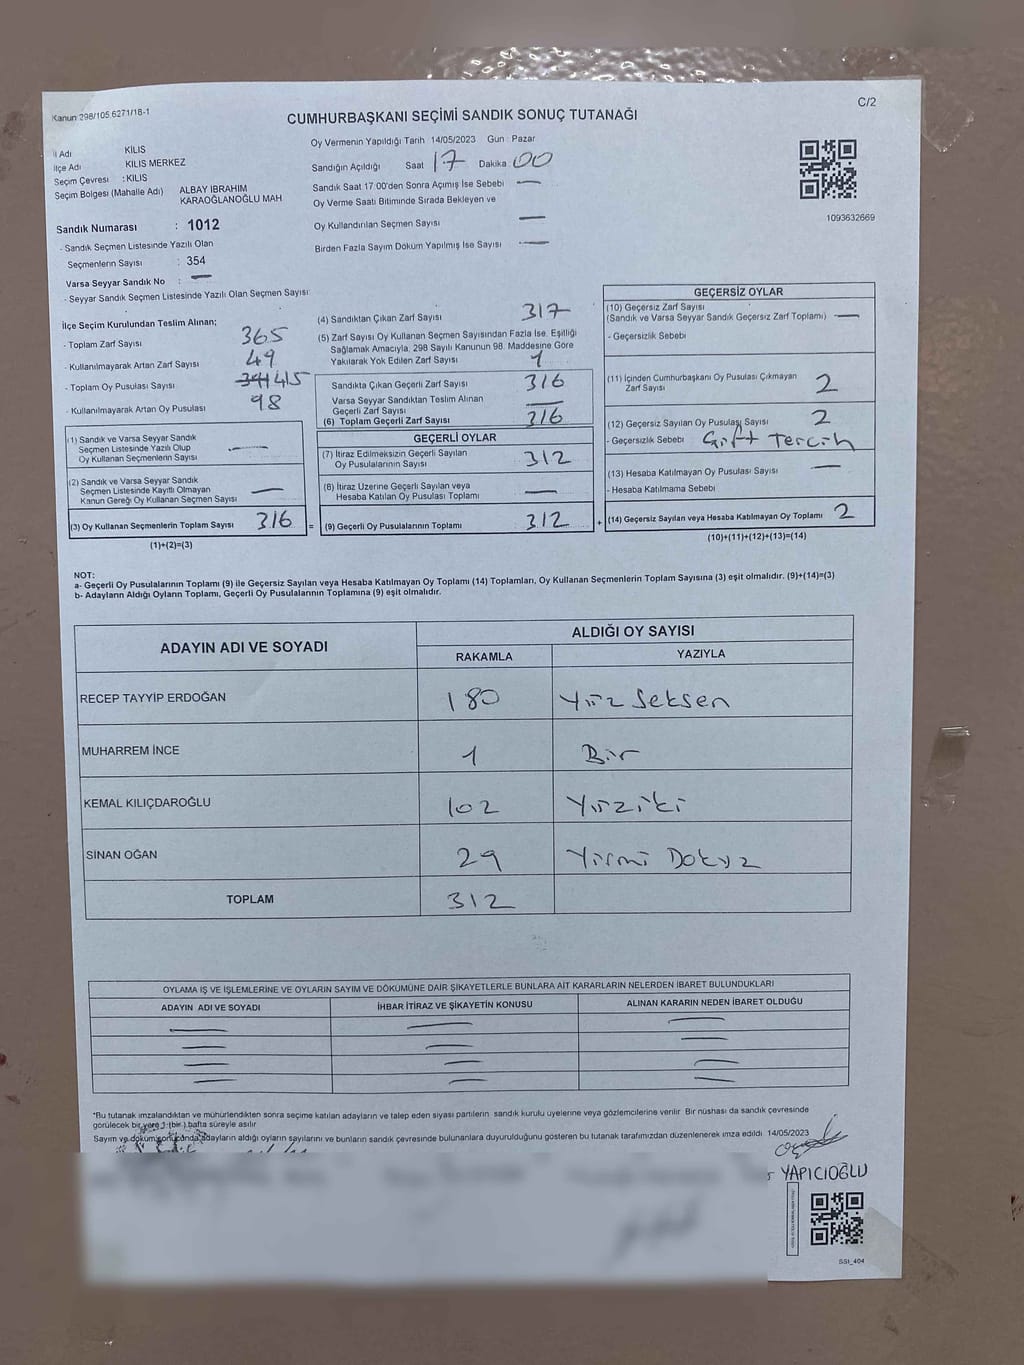 Kanun 298/105.6271/18-1
C/2
CUMHURBAŞKANI SEÇİMİ SANDIK SONUÇ TUTANAĞI
İl Adı KİLİS
İlçe Adı KİLİS MERKEZ
Seçim Çevresi : KİLİS
Seçim Bölgesi (Mahalle Adı) ALBAY İBRAHİM
KARAOĞLANOĞLU MAH
Sandık Numarası : 1012
- Sandık Seçmen Listesinde Yazılı Olan
Seçmenlerin Sayısı : 354
Varsa Seyyar Sandık No : —
- Seyyar Sandık Seçmen Listesinde Yazılı Olan Seçmen Sayısı:
Oy Vermenin Yapıldığı Tarih 14/05/2023 Gün : Pazar
Sandığın Açıldığı Saat 17 Dakika 00
Sandık Saat 17:00'den Sonra Açılmış İse Sebebi —
Oy Verme Saati Bitiminde Sırada Bekleyen ve
Oy Kullandırılan Seçmen Sayısı —
Birden Fazla Sayım Döküm Yapılmış İse Sayısı —
1093632669
İlçe Seçim Kurulundan Teslim Alınan;
- Toplam Zarf Sayısı 365
- Kullanılmayarak Artan Zarf Sayısı 49
- Toplam Oy Pusulası Sayısı 415
- Kullanılmayarak Artan Oy Pusulası 98
(1) Sandık ve Varsa Seyyar Sandık
Seçmen Listesinde Yazılı Olup
Oy Kullanan Seçmenlerin Sayısı —
(2) Sandık ve Varsa Seyyar Sandık
Seçmen Listesinde Kayıtlı Olmayan
Kanun Gereği Oy Kullanan Seçmen Sayısı —
(3) Oy Kullanan Seçmenlerin Toplam Sayısı 316 =
(1)+(2)=(3)
(4) Sandıktan Çıkan Zarf Sayısı 317
(5) Zarf Sayısı Oy Kullanan Seçmen Sayısından Fazla İse, Eşitliği
Sağlamak Amacıyla, 298 Sayılı Kanunun 98. Maddesine Göre
Yakılarak Yok Edilen Zarf Sayısı 1
Sandıkta Çıkan Geçerli Zarf Sayısı 316
Varsa Seyyar Sandıktan Teslim Alınan
Geçerli Zarf Sayısı —
(6) Toplam Geçerli Zarf Sayısı 316
GEÇERLİ OYLAR
(7) İtiraz Edilmeksizin Geçerli Sayılan
Oy Pusulalarının Sayısı 312
(8) İtiraz Üzerine Geçerli Sayılan veya
Hesaba Katılan Oy Pusulası Toplamı —
(9) Geçerli Oy Pusulalarının Toplamı 312 +
GEÇERSİZ OYLAR
(10) Geçersiz Zarf Sayısı
(Sandık ve Varsa Seyyar Sandık Geçersiz Zarf Toplamı) —
- Geçersizlik Sebebi
(11) İçinden Cumhurbaşkanı Oy Pusulası Çıkmayan
Zarf Sayısı 2
(12) Geçersiz Sayılan Oy Pusulası Sayısı 2
- Geçersizlik Sebebi Çift Tercih
(13) Hesaba Katılmayan Oy Pusulası Sayısı —
- Hesaba Katılmama Sebebi
(14) Geçersiz Sayılan veya Hesaba Katılmayan Oy Toplamı 2
(10)+(11)+(12)+(13)=(14)
NOT:
a- Geçerli Oy Pusulalarının Toplamı (9) ile Geçersiz Sayılan veya Hesaba Katılmayan Oy Toplamı (14) Toplamları, Oy Kullanan Seçmenlerin Toplam Sayısına (3) eşit olmalıdır. (9)+(14)=(3)
b- Adayların Aldığı Oyların Toplamı, Geçerli Oy Pusulalarının Toplamına (9) eşit olmalıdır.
ADAYIN ADI VE SOYADI ALDIĞI OY SAYISI
RAKAMLA YAZIYLA
RECEP TAYYİP ERDOĞAN 180 Yüz Seksen
MUHARREM İNCE 1 Bir
KEMAL KILIÇDAROĞLU 102 Yüziki
SİNAN OĞAN 29 Yirmi Dokuz
TOPLAM 312
OYLAMA İŞ VE İŞLEMLERİNE VE OYLARIN SAYIM VE DÖKÜMÜNE DAİR ŞİKAYETLERLE BUNLARA AİT KARARLARIN NELERDEN İBARET BULUNDUKLARI
ADAYIN ADI VE SOYADI İHBAR İTİRAZ VE ŞİKAYETİN KONUSU ALINAN KARARIN NEDEN İBARET OLDUĞU
— — —
— — —
— — —
— — —
*Bu tutanak imzalandıktan ve mühürlendikten sonra seçime katılan adayların ve talep eden siyasi partilerin sandık kurulu üyelerine veya gözlemcilerine verilir. Bir nüshası da sandık çevresinde
görülecek bir yere 1 (bir) hafta süreyle asılır.
Sayım ve döküm sonucunda adayların aldığı oyların sayılarını ve bunların sandık çevresinde bulunanlara duyurulduğunu gösteren bu tutanak tarafımızdan düzenlenerek imza edildi 14/05/2023
YAPICIOĞLU
SSI_404